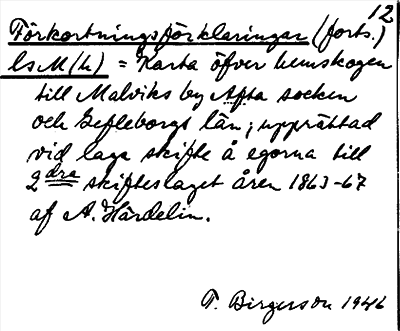 12
Förkortningsförklaringar (forts.)
ls M (h) = Karta öfver hemskogen
till Malviks by Alfta socken
och Gefleborgs län; upprättad
vid laga skifte å egorna till
2dra skifteslaget åren 1863-67
af A. Härdelin.
T. Birgerson 1946